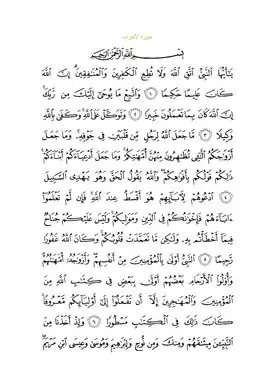 سورة الأحزاب
بِسْمِ اللَّهِ الرَّحْمَٰنِ الرَّحِيمِ
يَٰٓأَيُّهَا النَّبِيُّ اتَّقِ اللَّهَ وَلَا تُطِعِ الْكَٰفِرِينَ وَالْمُنَٰفِقِينَ إِنَّ اللَّهَ
كَانَ عَلِيمًا حَكِيمًا ١ وَاتَّبِعْ مَا يُوحَىٰٓ إِلَيْكَ مِن رَّبِّكَ
إِنَّ اللَّهَ كَانَ بِمَا تَعْمَلُونَ خَبِيرًا ٢ وَتَوَكَّلْ عَلَى اللَّهِ وَكَفَىٰ بِاللَّهِ
وَكِيلًا ٣ مَّا جَعَلَ اللَّهُ لِرَجُلٍ مِّن قَلْبَيْنِ فِي جَوْفِهِ وَمَا جَعَلَ
أَزْوَٰجَكُمُ الَّٰٓـِٔي تُظَٰهِرُونَ مِنْهُنَّ أُمَّهَٰتِكُمْ وَمَا جَعَلَ أَدْعِيَآءَكُمْ أَبْنَآءَكُمْ
ذَٰلِكُمْ قَوْلُكُم بِأَفْوَٰهِكُمْ وَاللَّهُ يَقُولُ الْحَقَّ وَهُوَ يَهْدِي السَّبِيلَ
٤ ادْعُوهُمْ لِءَابَآئِهِمْ هُوَ أَقْسَطُ عِندَ اللَّهِ فَإِن لَّمْ تَعْلَمُوٓا
ءَابَآءَهُمْ فَإِخْوَٰنُكُمْ فِي الدِّينِ وَمَوَٰلِيكُمْ وَلَيْسَ عَلَيْكُمْ جُنَاحٌ
فِيمَآ أَخْطَأْتُم بِهِ وَلَٰكِن مَّا تَعَمَّدَتْ قُلُوبُكُمْ وَكَانَ اللَّهُ غَفُورًا
رَّحِيمًا ٥ النَّبِيُّ أَوْلَىٰ بِالْمُؤْمِنِينَ مِنْ أَنفُسِهِمْ وَأَزْوَٰجُهُٓ أُمَّهَٰتُهُمْ
وَأُولُوا الْأَرْحَامِ بَعْضُهُمْ أَوْلَىٰ بِبَعْضٍ فِي كِتَٰبِ اللَّهِ مِنَ
الْمُؤْمِنِينَ وَالْمُهَٰجِرِينَ إِلَّآ أَن تَفْعَلُوٓا إِلَىٰٓ أَوْلِيَآئِكُم مَّعْرُوفًا
كَانَ ذَٰلِكَ فِي الْكِتَٰبِ مَسْطُورًا ٦ وَإِذْ أَخَذْنَا مِنَ
النَّبِيِّـۧنَ مِيثَٰقَهُمْ وَمِنكَ وَمِن نُّوحٍ وَإِبْرَٰهِيمَ وَمُوسَىٰ وَعِيسَى ابْنِ مَرْيَمَ